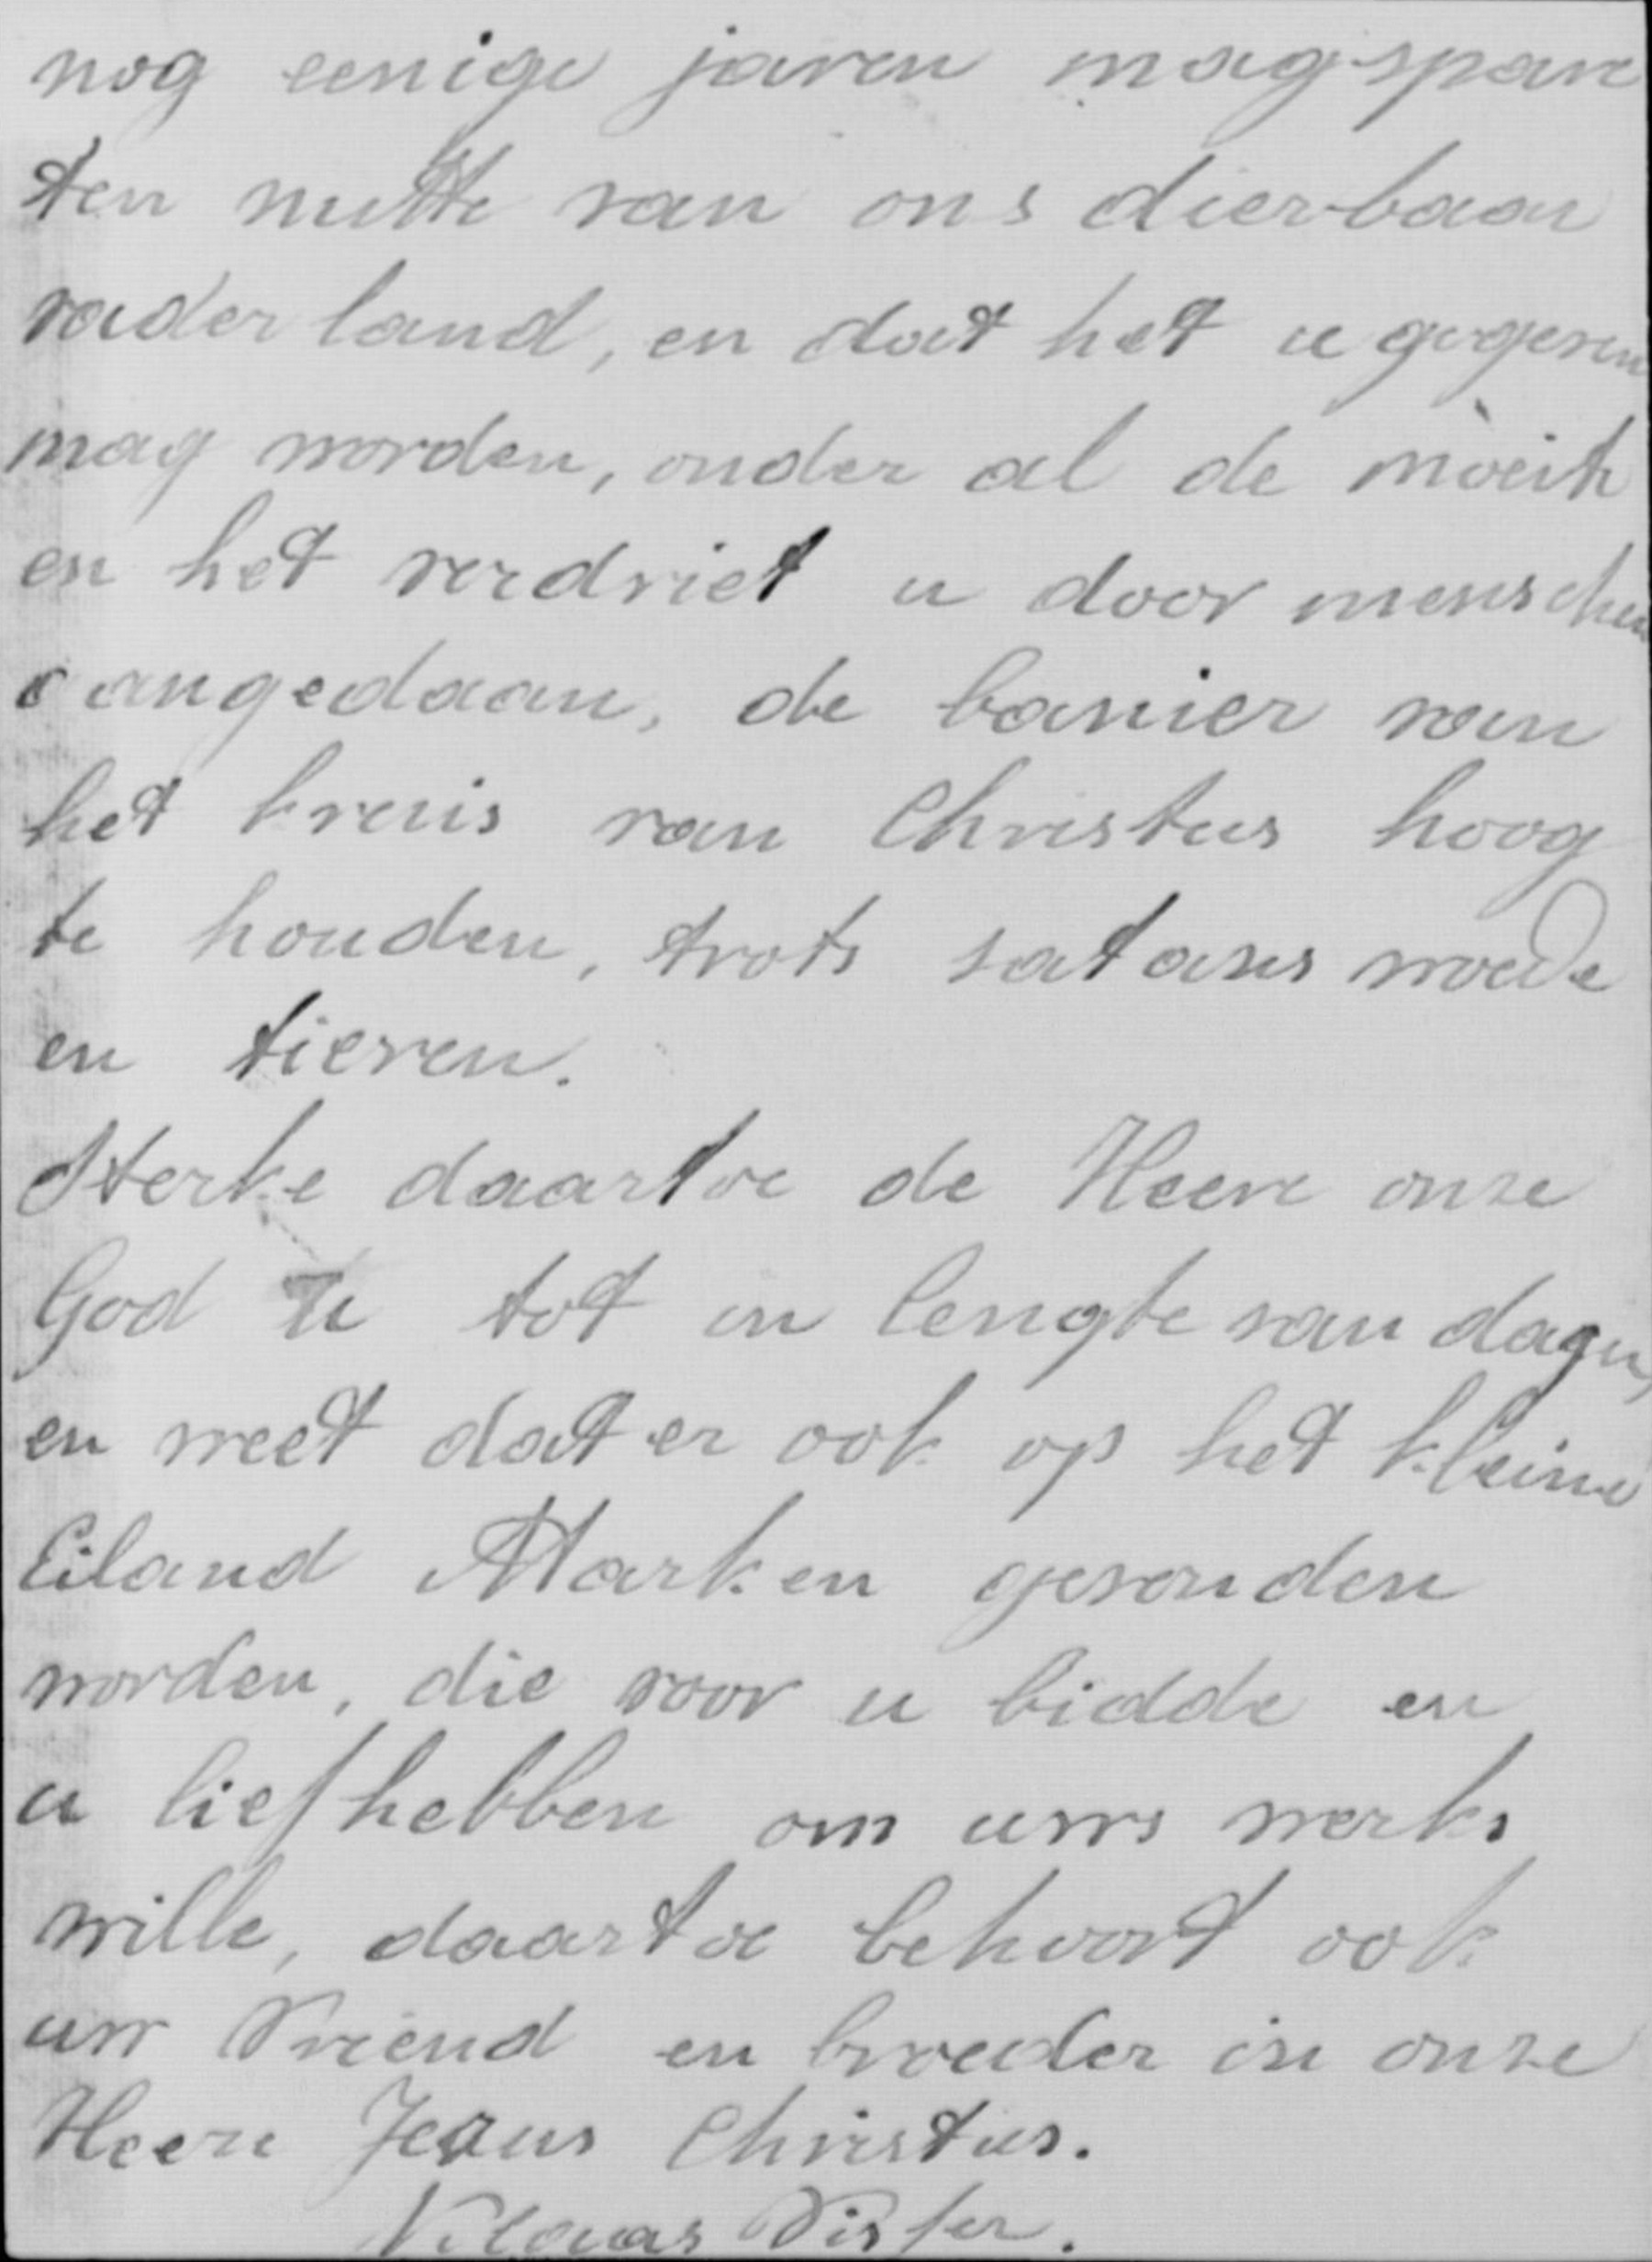 nog eenige jaren mag spare
ten nutte van ons dierbaar
vaderland, en dat het u gegeven
mag worden, onder al de moeite
en het verdriet u door menschen
aangedaan, de banier van
het kruis van Christus hoog
te houden, trots satans woede
en tieren.
Sterke daartoe de Heere onze
God U tot in lengte van dagen,
en weet dat er ook op het kleine
Eiland Marken gevonden
worden, die voor u bidde en
u liefhebben om uws werks
wille, daartoe behoort ook
uw Vriend en broeder in onze
Heere Jezus Christus.
Visser.